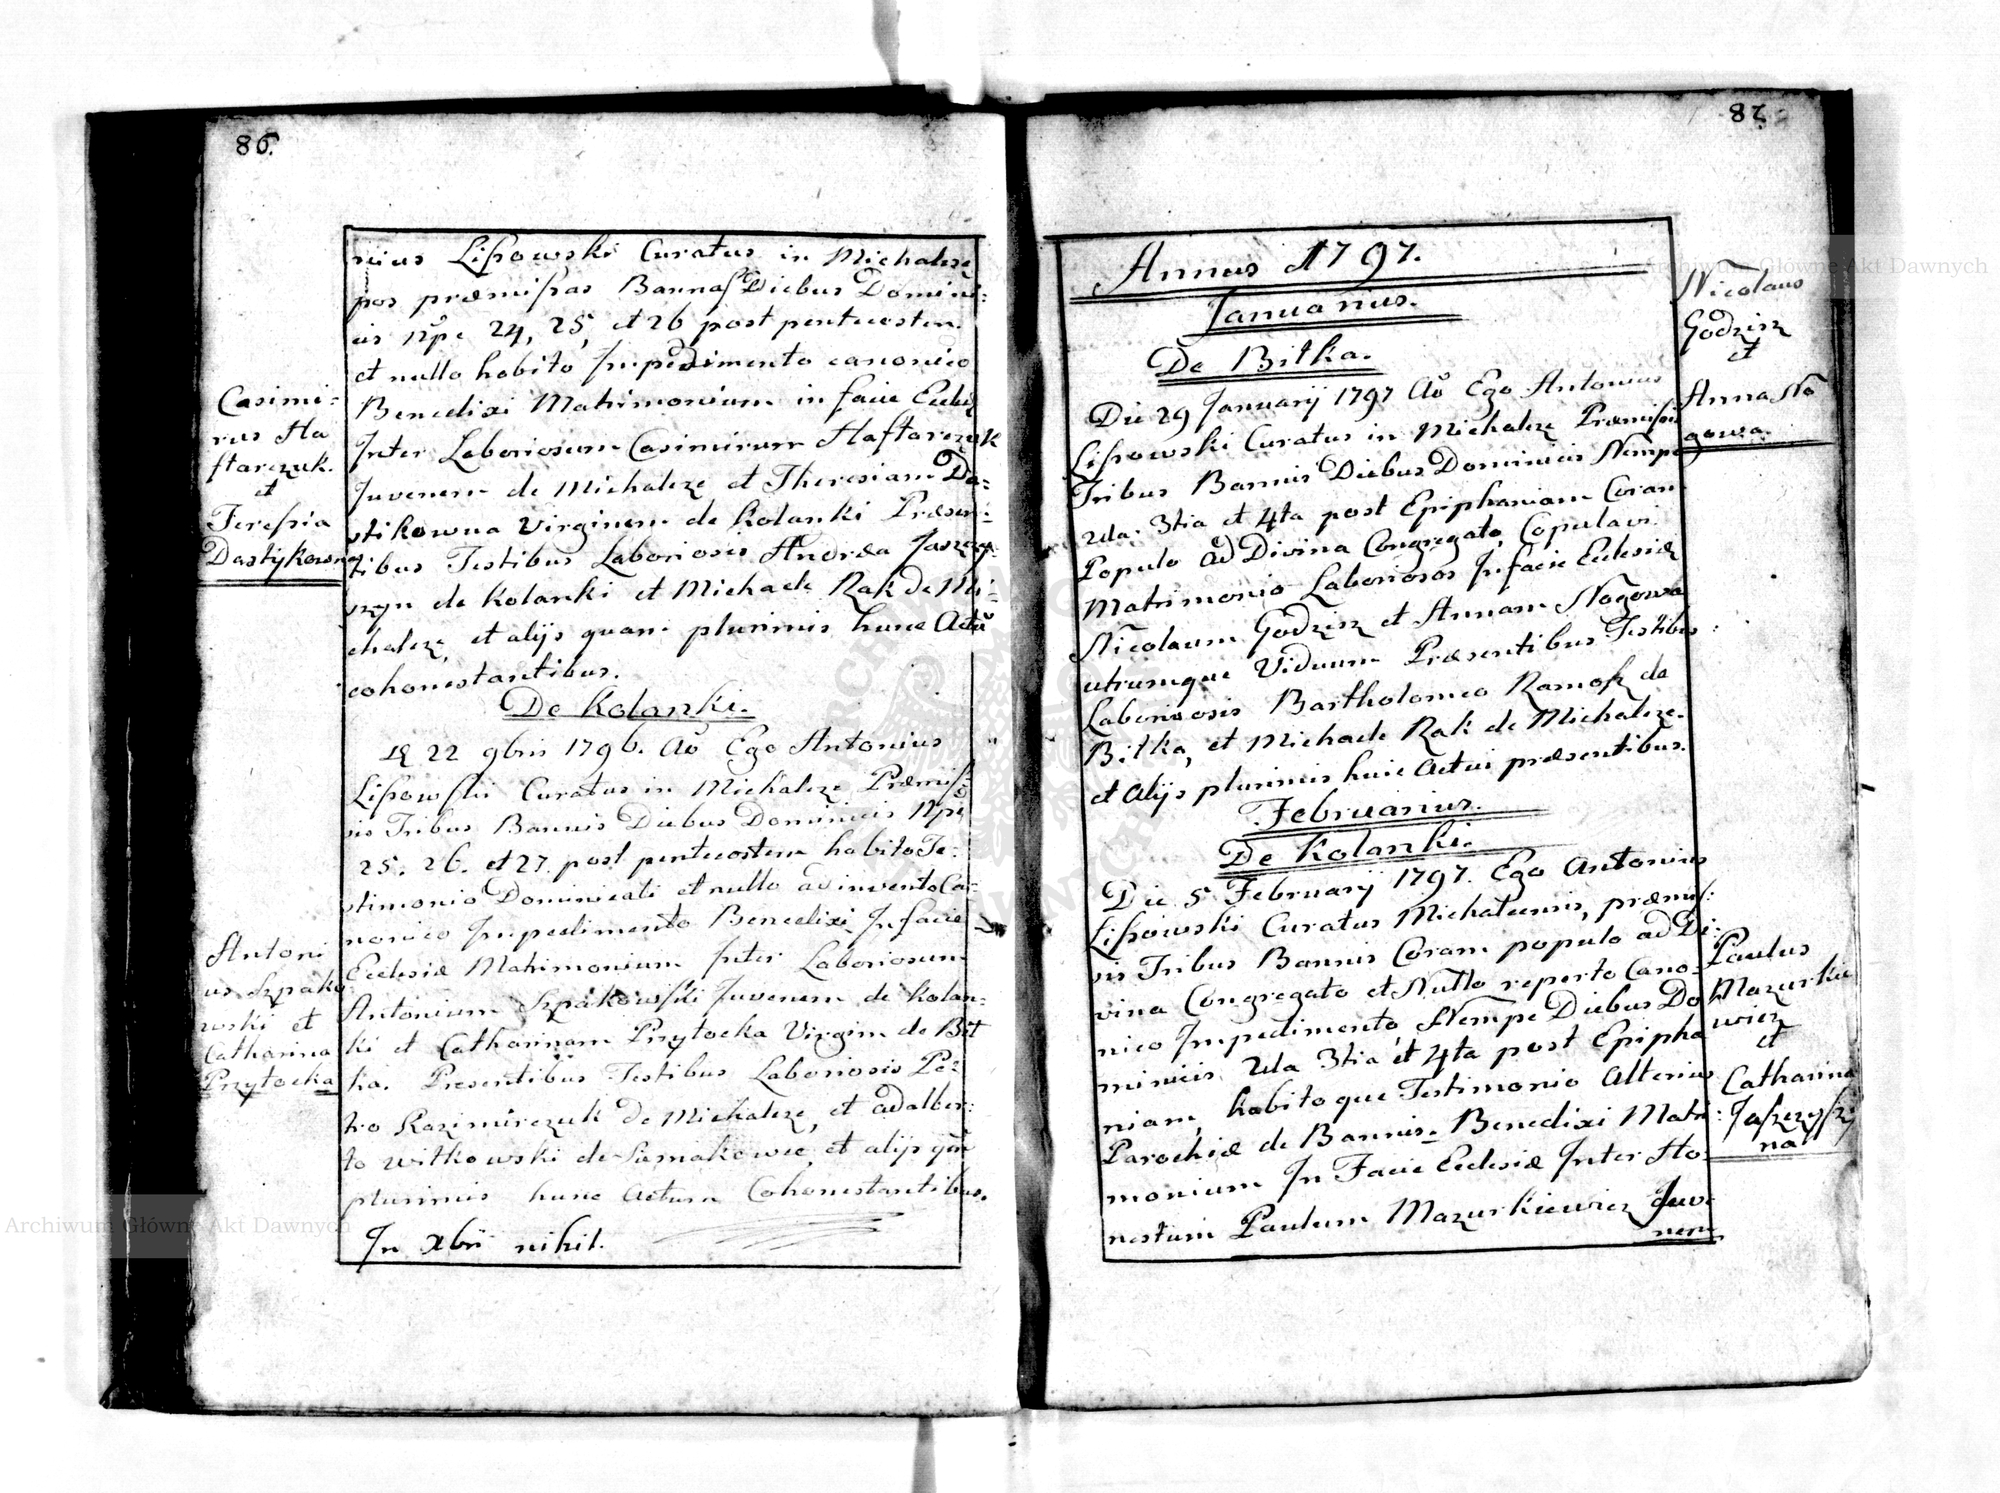 86.
Casimi=
rus Ha
ftarczuk.
et
Teressia
Dastykowna
Antoni
us Szpako
wski et
Catharina
Przytocka
nius Lissowski Curatus in Michalcze
pos præmissas Bannas Diebus Domini=
cis npe 24, 25, et 26 post pentecosten.
et nullo habito Impedimento canonico
Benedixi Matrimonium in facie Ecclesiæ
Inter Laboriosum Casimirum Haftarczuk
Juvenem de Michalcze et Theresiam Da=
stikowna Virginem de Kolanki Præsen=
tibus Testibus Laboriosis Andrea Jaszczy
szyn de Kolanki et Michaele Rak de Mi=
chalcze, et alijs quam plurimis hunc Actũ
cohonestantibus.
De Kolanki.
22 9bris 1796. Aõ Ego Antonius
Lissowski Curatus in Michalcze Præmis=
sis Tribus Bannis Diebus Dominicis Npe
25. 26. et 27. post pentecosten habito Te=
stimonio Dominicali et nullo adinvento Ca=
nonico Impedimento Benedixi In facie
Ecclesiæ Matrimonium Inter Laboriosum
Antonium Szpakowski Juvenem de Kolan=
ki et Catharinam Przytocka Virginem de Bit
ka. Presentibus Testibus Laboriosis Pe=
tro Kazimirczuk de Michalcze, et adalber=
to Witkowski de Siemakowce, et alijs qũm
plurimis hunc Actum Cohonestantibus.
In Xbri nihil.
87
Annus 1797.
Januarius.
De Bitka.
Die 29 Januarij 1797 Aõ Ego Antonius
Lissowski Curatus in Michalcze Præmissis
Tribus Bannis Diebus Dominicis Nempe
2da. 3tia et 4ta post Epiphaniam Coram
Populo ad Divina Congregato, Copulavi
Matrimonio Laboriosos In facie Ecclesiæ
Nicolaum Godzisz et Annam Nogowa
utrumque Viduum Præsentibus Testibus
Laboriosis Bartholomeo Ramosz de
Bitka, et Michaele Rak de Michalcze.
et Alijs plurimis huic Actui præsentibus.
Februarius.
De Kolanki.
Die 5 Februarij 1797. Ego Antonius
Lissowski Curatus Michalcensis, præmis=
sis Tribus Bannis Coram populo ad Di=
vina Congregato et Nullo reperto Cano=
nico Impedimento, Nempe Diebus Do
minicis 2da 3tia et 4ta post Epipha
niam, habitoque Testimonio Alterius
Parochiæ de Bannis. Benedixi Matri=
monium In Facie Ecclesiæ Inter Ho=
nestum Paulum Mazurkiewicz Juve
nem
Nicolaus
Godzisz
et
Anna No
gowa.
Paulus
Mazurkie
wicz
et
Catharina
Jaszczyszy
na
Archiwum Główne Akt Dawnych
Archiwum Główne Akt Dawnych